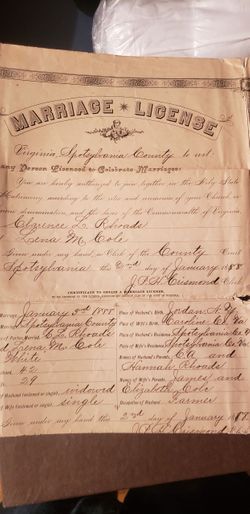 MARRIAGE LICENSE
Virginia, Spotsylvania County to wit:
any Person Licensed to Celebrate Marriages:
You are hereby authorized to join together in the Holy State
Matrimony, according to the rites and ceremonies of your Church, or
ious denomination, and the laws of the Commonwealth of Virginia
L. Rhoads
Lorena M. Cole
Given under my hand, as Clerk of the County Court
Spotsylvania the 2nd day of January 188
Clerk
CERTIFICATE TO OBTAIN A MARRIAGE LICENSE
Marriage, January 3rd 1888
Marriage, Spotsylvania County
Married, E. L. Rhoads
d Lorena M. Cole
White
42
29
Husband (widowed or single) widowed
Wife (widowed or single) single
Place of Husband's Birth, Jordan N. Y.
Place of Wife's Birth, Caroline Co. Va
Spotsylvania Co. Va
Spotsylvania Co. Va
Names of Husband's Parents, E A and
Hannah Rhoads
Names of Wife's Parents, James and
Elizabeth Cole
Occupation of Husband, Farmer
Given under my hand this 2nd day of January 188